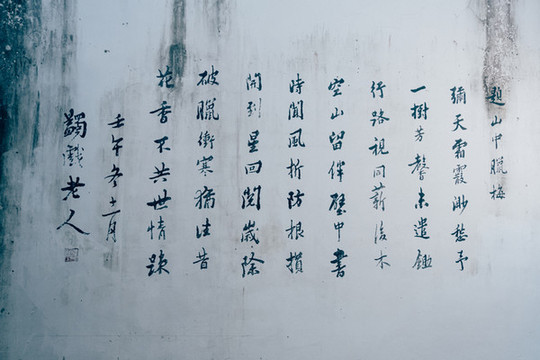 題山中臘梅
彌天霜霰渺愁予
一樹芳馨未遣鋤
行路視同薪後木
空山留伴壁中書
時聞風折防根損
開到星回閱歲除
破臘衝寒猶往昔
花香不共世情踈
壬午冬十二月
蠲戲老人